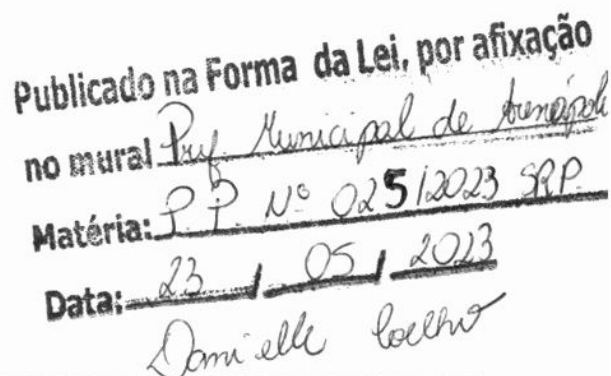 Publicado na Forma da Lei, por afixação
no mural Pref Municipal de Arenápoli
Matéria: P. P. Nº 025/2023 SRP.
Data: 23 / 05 / 2023
Danielle Coelho